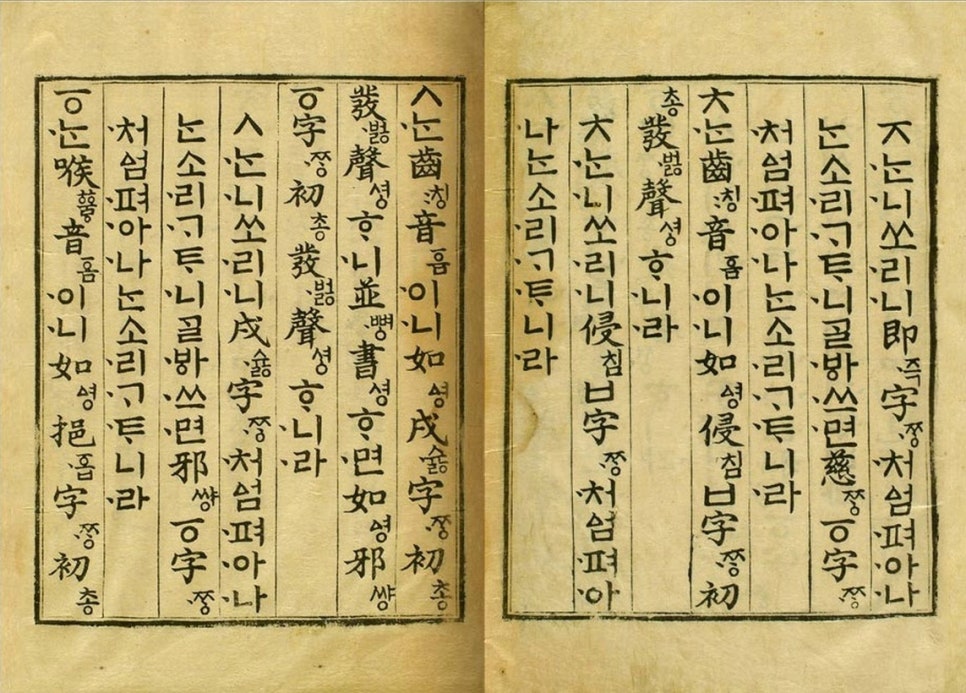 ㅈᄂᆞᆫ니쏘리니即즉字ᄍᆞᆼ처ᅀᅥᆷ펴아나
ᄂᆞᆫ소리ᄀᆞᄐᆞ니ᄀᆞᆯᄫᅡ쓰면慈ᄍᆞᆼㆆ字ᄍᆞᆼ
처ᅀᅥᆷ펴아나ᄂᆞᆫ소리ᄀᆞᄐᆞ니라
ㅊᄂᆞᆫ齒칭音ᅙᅳᆷ이니如ᅀᅧᆼ侵침ㅂ字ᄍᆞᆼ初
총發벓聲셩ᄒᆞ니라
ㅊᄂᆞᆫ니쏘리니侵침ㅂ字ᄍᆞᆼ처ᅀᅥᆷ펴아
나ᄂᆞᆫ소리ᄀᆞᄐᆞ니라
ㅅᄂᆞᆫ齒칭音ᅙᅳᆷ이니如ᅀᅧᆼ戌슗字ᄍᆞᆼ初총
發벓聲셩ᄒᆞ니並뼝書셩ᄒᆞ면如ᅀᅧᆼ邪썅
ㆆ字ᄍᆞᆼ初총發벓聲셩ᄒᆞ니라
ㅅᄂᆞᆫ니쏘리니戌슗字ᄍᆞᆼ처ᅀᅥᆷ펴아나
ᄂᆞᆫ소리ᄀᆞᄐᆞ니ᄀᆞᆯᄫᅡ쓰면邪썅ㆆ字ᄍᆞᆼ
처ᅀᅥᆷ펴아나ᄂᆞᆫ소리ᄀᆞᄐᆞ니라
ㆆᄂᆞᆫ喉ᅘᅮᇢ音ᅙᅳᆷ이니如ᅀᅧᆼ挹ᅙᅳᆸ字ᄍᆞᆼ初총